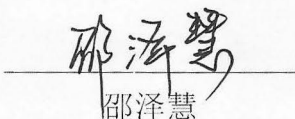 邵泽慧
邵泽慧